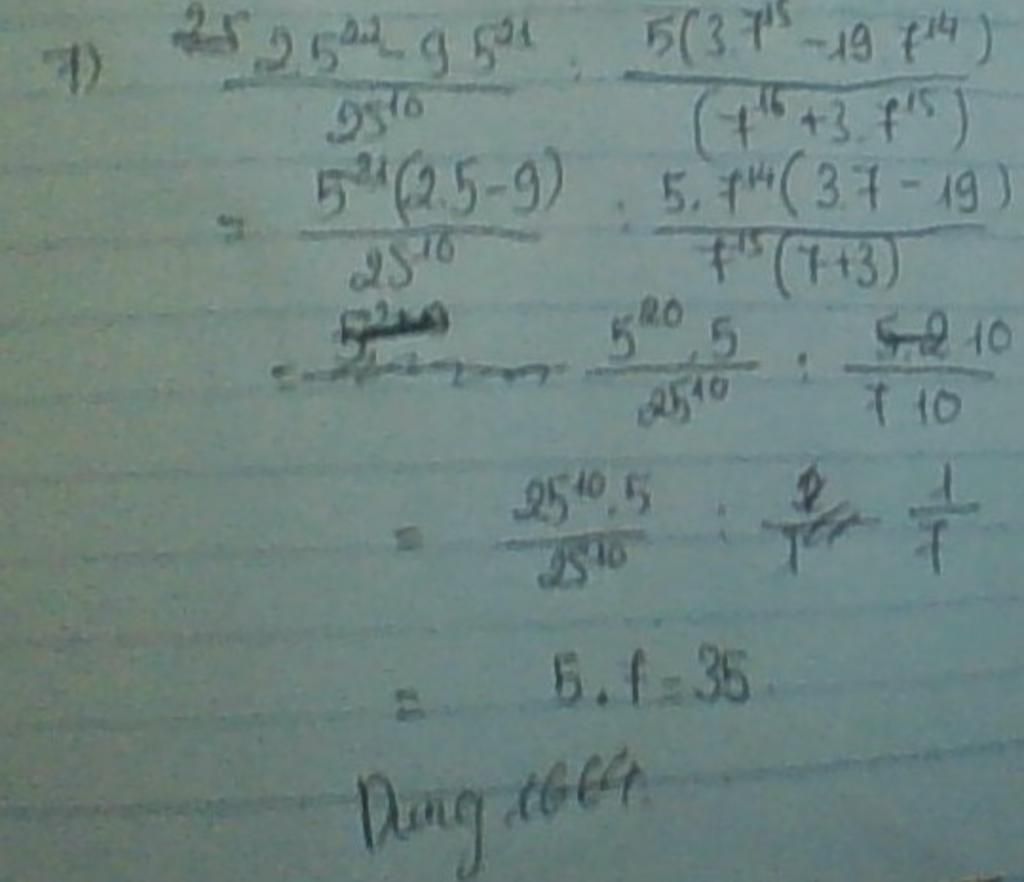 7) 2.5²² - 9 5²¹ / 25¹⁰ : 5(3.7¹⁵ - 19 7¹⁴) / (7¹⁶ + 3.7¹⁵)
= 5²¹(2.5-9) / 25¹⁰ : 5.7¹⁴(3.7 - 19) / 7¹⁵(7+3)
= 5²⁰.5 / 25¹⁰ : 10 / 7 10
= 25¹⁰.5 / 25¹⁰ : 1 / 7
= 5.7 = 35